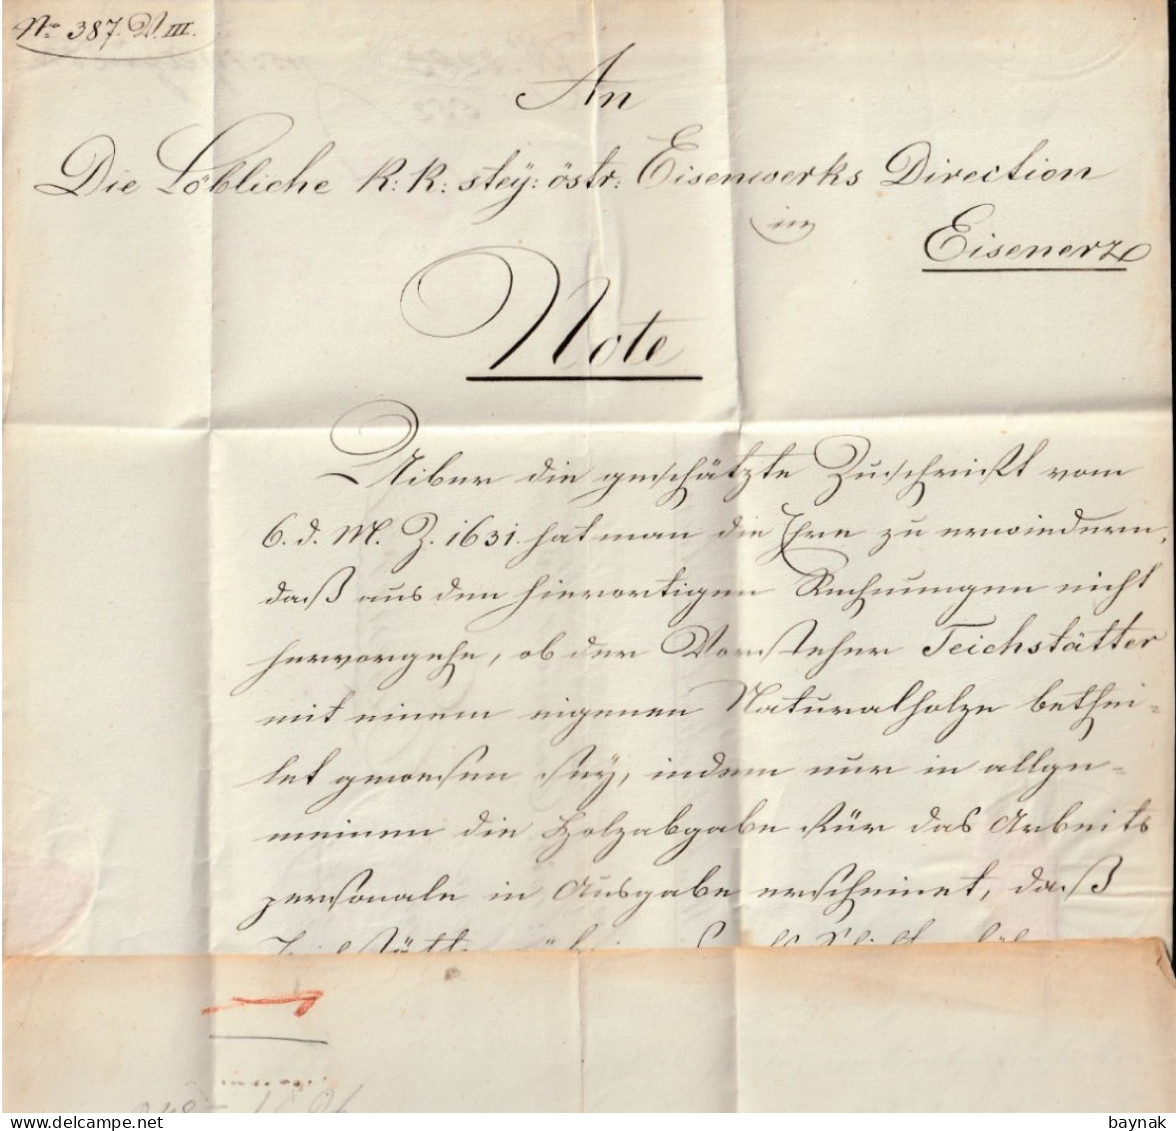 No 387. V. III.
An
Die Löbliche K: K: stey: östr: Eisenwerks Direction
in
Eisenerz
Note
Uiber die geschätzte Zuschrift vom
6. d. M. Z. 1631. hat man die Ehre zu erwiedern,
daß aus den hierortigen Rechnungen nicht
hervorgehe, ob der Vorsteher Teichstätter
mit einem eigenen Naturalholze bethei-
let gewesen sey, indem nur in allge-
meinen die Holzabgabe für das Arbeits
personale in Ausgabe erscheinet, daß
baynak